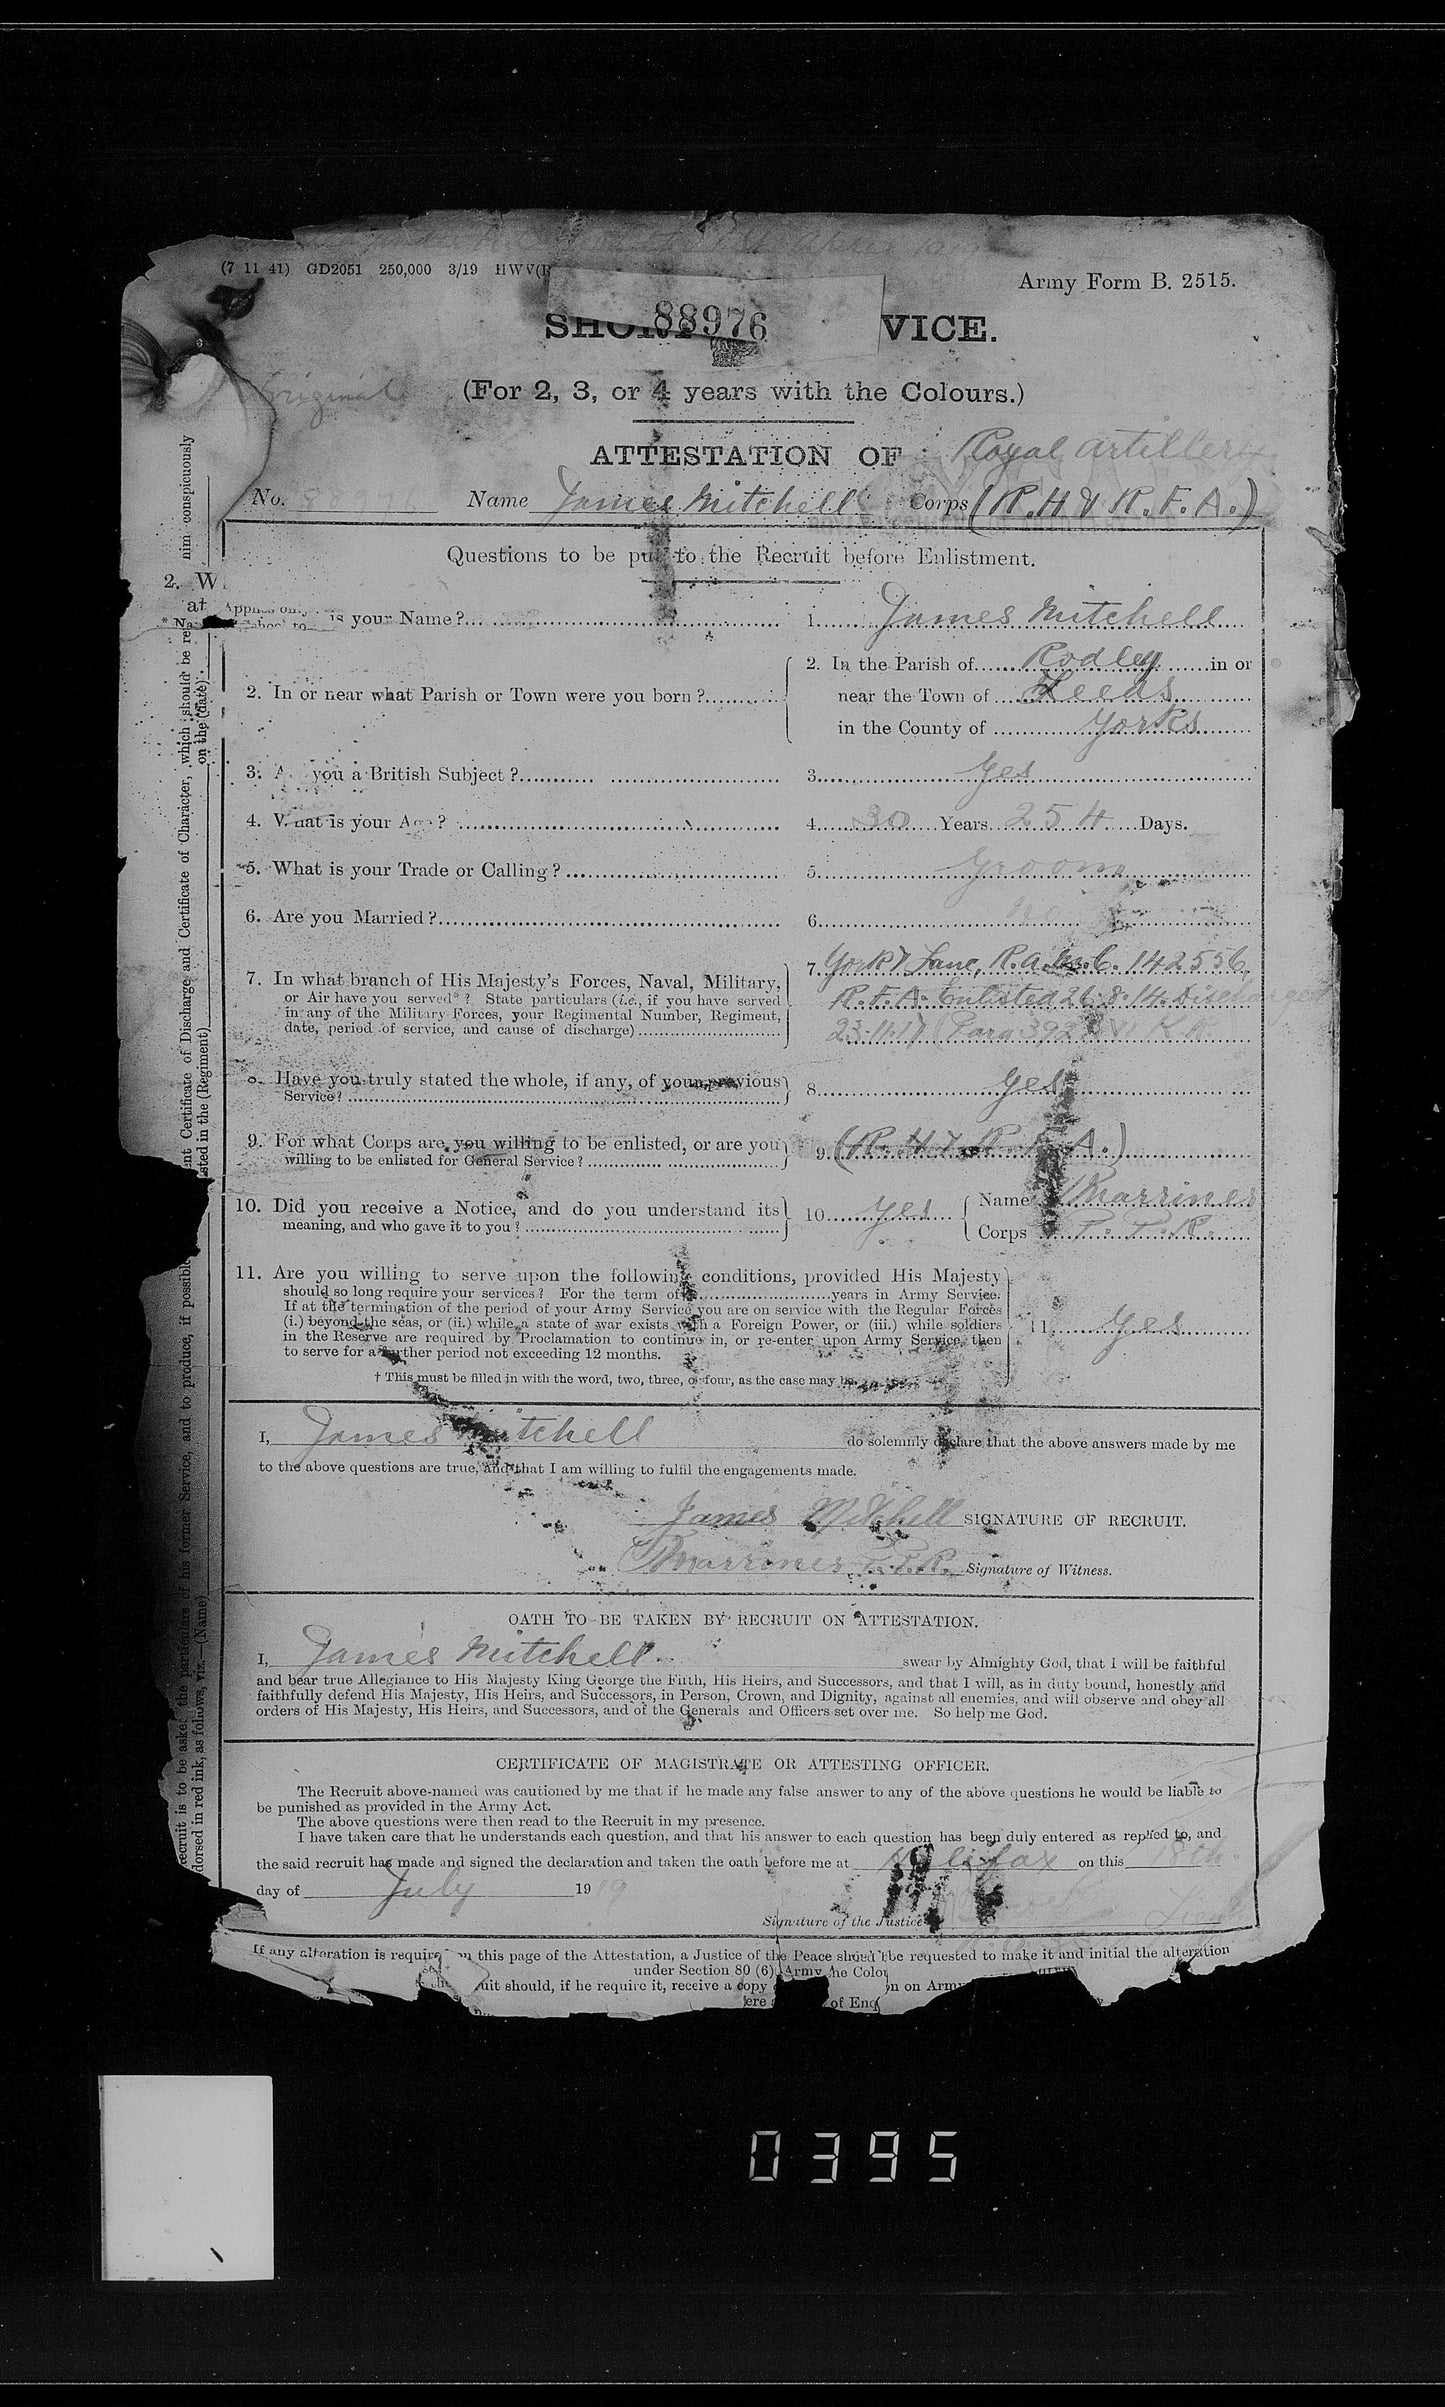 (7 11 41) GD2051 250,000 3/19 HWV(
Army Form B. 2515.
88976
VICE.
Original
(For 2, 3, or 4 years with the Colours.)
ATTESTATION OF Royal Artillery
No. 88976 Name James Mitchell Corps (R.H & R.F.A.)
Questions to be put to the Recruit before Enlistment.
is your Name?
1. James Mitchell
2. In or near what Parish or Town were you born?
2. In the Parish of Rodley in or
near the Town of Leeds
in the County of Yorks
3. you a British Subject? 3. Yes
4. What is your Age? 4. 30 Years 254 Days.
5. What is your Trade or Calling? 5. Groom
6. Are you Married? 6. no
7. In what branch of His Majesty's Forces, Naval, Military,
or Air have you served*? State particulars (i.e., if you have served
in any of the Military Forces, your Regimental Number, Regiment,
date, period of service, and cause of discharge)
7. York & Lanc, R.A.M.C. 142556
R.F.A. Enlisted 26.8.14 Discharged
Para 392 K.R.
8. Have you truly stated the whole, if any, of your previous
Service? 8. Yes
9. For what Corps are you willing to be enlisted, or are you
willing to be enlisted for General Service? 9. (R.H & R.F.A.)
10. Did you receive a Notice, and do you understand its
meaning, and who gave it to you? 10. Yes
Name
Corps
11. Are you willing to serve upon the following conditions, provided His Majesty
should so long require your services? For the term of years in Army Service.
If at the termination of the period of your Army Service you are on service with the Regular Forces
(i.) beyond the seas, or (ii.) while a state of war exists with a Foreign Power, or (iii.) while soldiers
in the Reserve are required by Proclamation to continue in, or re-enter upon Army Service, then
to serve for a further period not exceeding 12 months.
11. Yes
† This must be filled in with the word, two, three, or four, as the case may be.
I, James Mitchell do solemnly declare that the above answers made by me
to the above questions are true, and that I am willing to fulfil the engagements made.
James Mitchell SIGNATURE OF RECRUIT.
Signature of Witness.
OATH TO BE TAKEN BY RECRUIT ON ATTESTATION.
I, James Mitchell swear by Almighty God, that I will be faithful
and bear true Allegiance to His Majesty King George the Fifth, His Heirs, and Successors, and that I will, as in duty bound, honestly and
faithfully defend His Majesty, His Heirs, and Successors, in Person, Crown, and Dignity, against all enemies, and will observe and obey all
orders of His Majesty, His Heirs, and Successors, and of the Generals and Officers set over me. So help me God.
CERTIFICATE OF MAGISTRATE OR ATTESTING OFFICER.
The Recruit above-named was cautioned by me that if he made any false answer to any of the above questions he would be liable to
be punished as provided in the Army Act.
The above questions were then read to the Recruit in my presence.
I have taken care that he understands each question, and that his answer to each question has been duly entered as replied to, and
the said recruit has made and signed the declaration and taken the oath before me at Halifax on this 18th
day of July 1919
Signature of the Justice
If any alteration is required on this page of the Attestation, a Justice of the Peace should be requested to make it and initial the alteration
under Section 80 (6) Army
should, if he require it, receive a copy on Army
0395